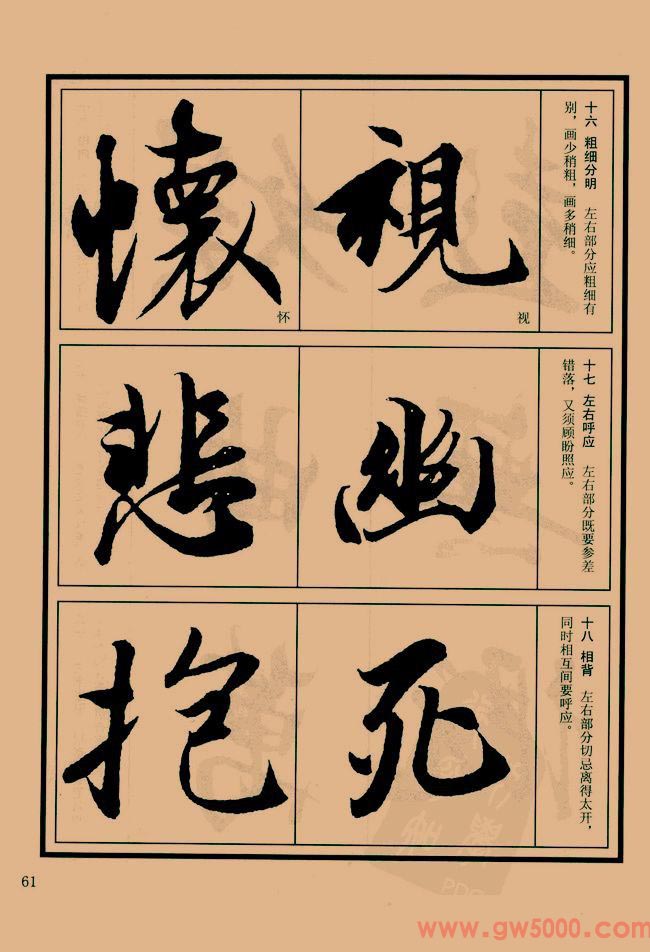 十六 粗细分明 左右部分应粗细有
别，画少稍粗，画多稍细。
視
视
懷
怀
十七 左右呼应 左右部分既要参差
错落，又须顾盼照应。
幽
悲
十八 相背 左右部分切忌离得太开，
同时相互间要呼应。
死
抱
61
www.gw5000.com